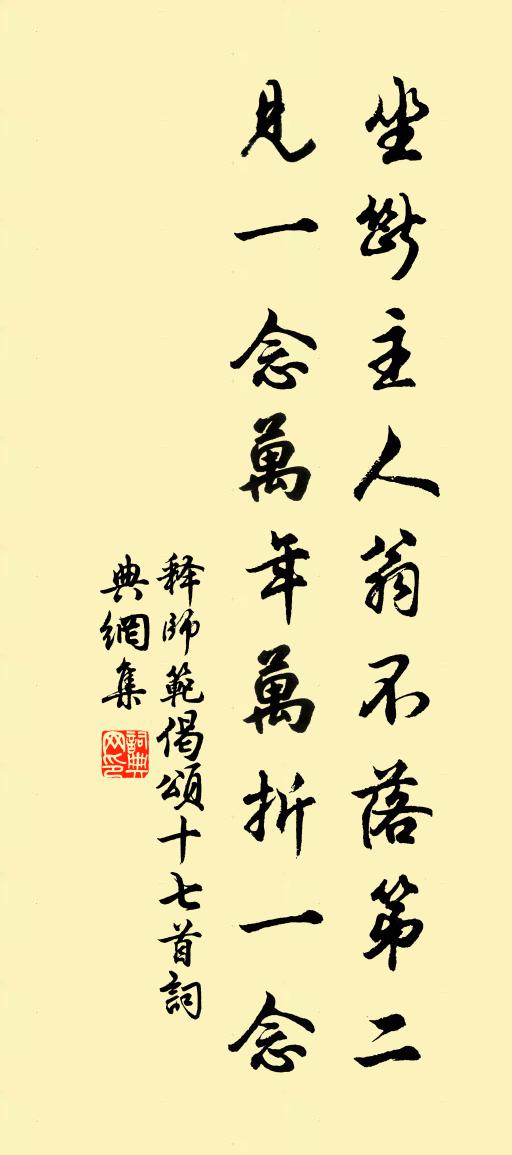 坐斷主人翁不落第二
見一念萬年萬折一念
釋師範偈頌十七首詞
典網集
詞典網印